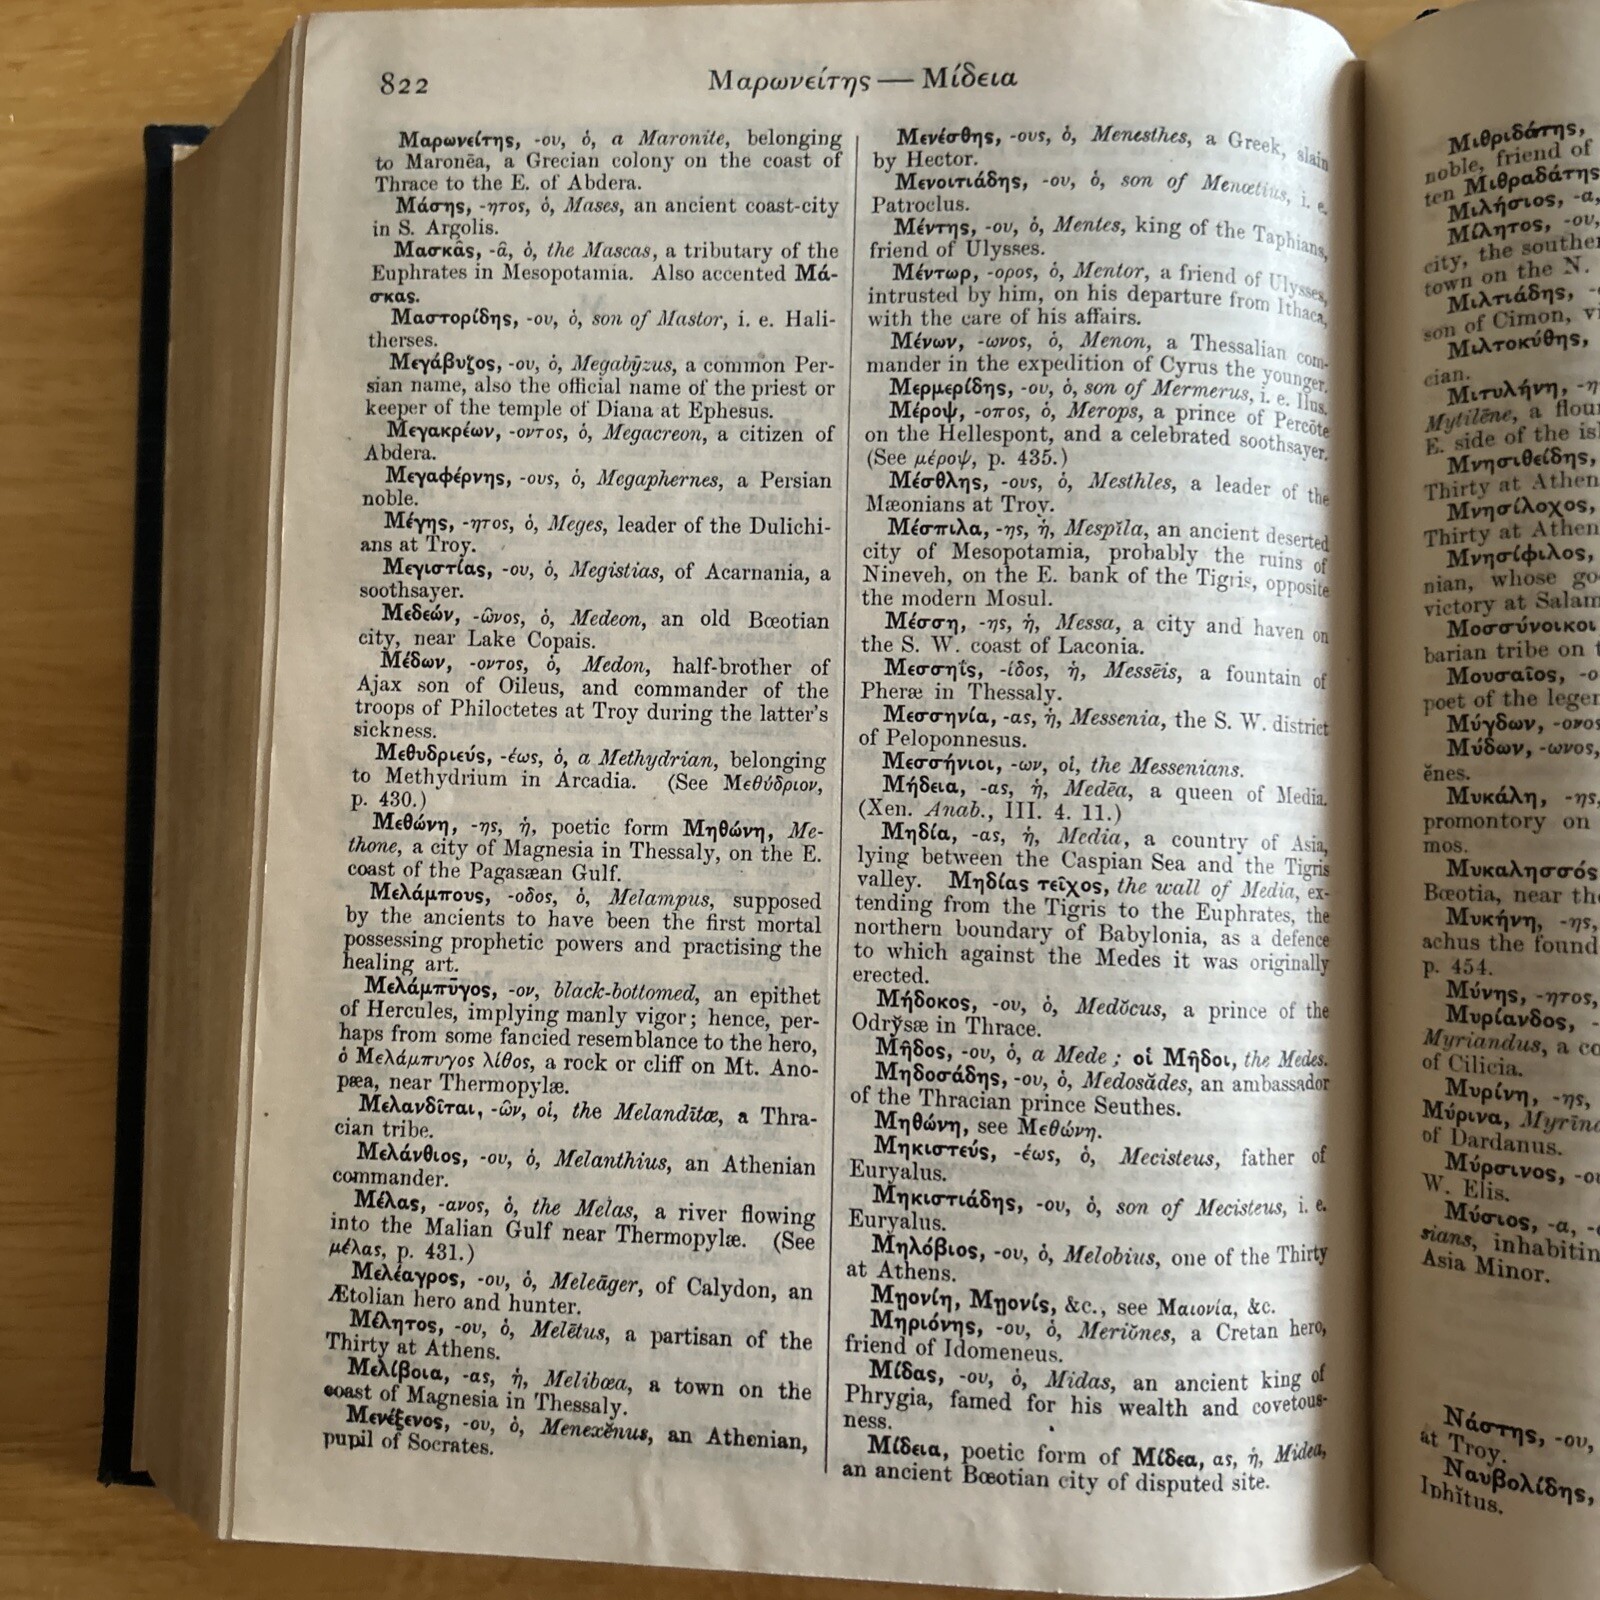 822
Μαρωνείτης — Μίδεια
Μαρωνείτης, -ου, ὁ, a Maronite, belonging
to Maronēa, a Grecian colony on the coast of
Thrace to the E. of Abdera.
Μάσης, -ητος, ὁ, Mases, an ancient coast-city
in S. Argolis.
Μασκᾶς, -ᾶ, ὁ, the Mascas, a tributary of the
Euphrates in Mesopotamia. Also accented Μά-
σκας.
Μαστορίδης, -ου, ὁ, son of Mastor, i. e. Hali-
therses.
Μεγάβυζος, -ου, ὁ, Megabȳzus, a common Per-
sian name, also the official name of the priest or
keeper of the temple of Diana at Ephesus.
Μεγακρέων, -οντος, ὁ, Megacreon, a citizen of
Abdera.
Μεγαφέρνης, -ους, ὁ, Megaphernes, a Persian
noble.
Μέγης, -ητος, ὁ, Meges, leader of the Dulichi-
ans at Troy.
Μεγιστίας, -ου, ὁ, Megistias, of Acarnania, a
soothsayer.
Μεδεών, -ῶνος, ὁ, Medeon, an old Bœotian
city, near Lake Copais.
Μέδων, -οντος, ὁ, Medon, half-brother of
Ajax son of Oileus, and commander of the
troops of Philoctetes at Troy during the latter's
sickness.
Μεθυδριεύς, -έως, ὁ, a Methydrian, belonging
to Methydrium in Arcadia. (See Μεθύδριον,
p. 430.)
Μεθώνη, -ης, ἡ, poetic form Μηθώνη, Me-
thone, a city of Magnesia in Thessaly, on the E.
coast of the Pagasæan Gulf.
Μελάμπους, -οδος, ὁ, Melampus, supposed
by the ancients to have been the first mortal
possessing prophetic powers and practising the
healing art.
Μελάμπῡγος, -ον, black-bottomed, an epithet
of Hercules, implying manly vigor; hence, per-
haps from some fancied resemblance to the hero,
ὁ Μελάμπυγος λίθος, a rock or cliff on Mt. Ano-
pæa, near Thermopylæ.
Μελανδῖται, -ῶν, οἱ, the Melandītæ, a Thra-
cian tribe.
Μελάνθιος, -ου, ὁ, Melanthius, an Athenian
commander.
Μέλας, -ανος, ὁ, the Melas, a river flowing
into the Malian Gulf near Thermopylæ. (See
μέλας, p. 431.)
Μελέαγρος, -ου, ὁ, Meleāger, of Calydon, an
Ætolian hero and hunter.
Μέλητος, -ου, ὁ, Melētus, a partisan of the
Thirty at Athens.
Μελίβοια, -ας, ἡ, Melibœa, a town on the
coast of Magnesia in Thessaly.
Μενέξενος, -ου, ὁ, Menexĕnus, an Athenian,
pupil of Socrates.
Μενέσθης, -ους, ὁ, Menesthes, a Greek, slain
by Hector.
Μενοιτιάδης, -ου, ὁ, son of Menœtius, i. e.
Patroclus.
Μέντης, -ου, ὁ, Mentes, king of the Taphians,
friend of Ulysses.
Μέντωρ, -ορος, ὁ, Mentor, a friend of Ulysses,
intrusted by him, on his departure from Ithaca,
with the care of his affairs.
Μένων, -ωνος, ὁ, Menon, a Thessalian com-
mander in the expedition of Cyrus the younger.
Μερμερίδης, -ου, ὁ, son of Mermerus, i. e. Ilus.
Μέροψ, -οπος, ὁ, Merops, a prince of Percōte
on the Hellespont, and a celebrated soothsayer.
(See μέροψ, p. 435.)
Μέσθλης, -ους, ὁ, Mesthles, a leader of the
Mæonians at Troy.
Μέσπιλα, -ης, ἡ, Mespĭla, an ancient deserted
city of Mesopotamia, probably the ruins of
Nineveh, on the E. bank of the Tigris, opposite
the modern Mosul.
Μέσση, -ης, ἡ, Messa, a city and haven on
the S. W. coast of Laconia.
Μεσσηΐς, -ίδος, ἡ, Messēis, a fountain of
Pheræ in Thessaly.
Μεσσηνία, -ας, ἡ, Messenia, the S. W. district
of Peloponnesus.
Μεσσήνιοι, -ων, οἱ, the Messenians.
Μήδεια, -ας, ἡ, Medēa, a queen of Media.
(Xen. Anab., III. 4. 11.)
Μηδία, -ας, ἡ, Media, a country of Asia,
lying between the Caspian Sea and the Tigris
valley. Μηδίας τεῖχος, the wall of Media, ex-
tending from the Tigris to the Euphrates, the
northern boundary of Babylonia, as a defence
to which against the Medes it was originally
erected.
Μήδοκος, -ου, ὁ, Medŏcus, a prince of the
Odry̆sæ in Thrace.
Μῆδος, -ου, ὁ, a Mede; οἱ Μῆδοι, the Medes.
Μηδοσάδης, -ου, ὁ, Medosădes, an ambassador
of the Thracian prince Seuthes.
Μηθώνη, see Μεθώνη.
Μηκιστεύς, -έως, ὁ, Mecisteus, father of
Euryalus.
Μηκιστιάδης, -ου, ὁ, son of Mecisteus, i. e.
Euryalus.
Μηλόβιος, -ου, ὁ, Melobius, one of the Thirty
at Athens.
Μῃονίη, Μῃονίς, &c., see Μαιονία, &c.
Μηριόνης, -ου, ὁ, Meriŏnes, a Cretan hero,
friend of Idomeneus.
Μίδας, -ου, ὁ, Midas, an ancient king of
Phrygia, famed for his wealth and covetous-
ness.
Μίδεια, poetic form of Μίδεα, ας, ἡ, Midea,
an ancient Bœotian city of disputed site.
Μιθριδάτης,
noble, friend of
ten Μιθραδάτης
Μιλήσιος, -α,
Μίλητος, -ου,
city, the souther
town on the N.
Μιλτιάδης,
son of Cimon, vi
Μιλτοκύθης,
cian.
Μιτυλήνη, -η
Mytilēne, a flou
E. side of the isl
Μνησιθείδης,
Thirty at Athen
Μνησίλοχος,
Thirty at Athen
Μνησίφιλος,
nian, whose go
victory at Salam
Μοσσύνοικοι
barian tribe on t
Μουσαῖος, -ο
poet of the legen
Μύγδων, -ονος
Μύδων, -ωνος,
ĕnes.
Μυκάλη, -ης,
promontory on
mos.
Μυκαλησσός
Bœotia, near the
Μυκήνη, -ης,
achus the found
p. 454.
Μύνης, -ητος,
Μυρίανδος, -
Myriandus, a co
of Cilicia.
Μυρίνη, -ης,
Μύρινα, Myrīna
of Dardanus.
Μύρσινος, -ου
W. Elis.
Μύσιος, -α, -
sians, inhabitin
Asia Minor.
Νάστης, -ου,
at Troy.
Ναυβολίδης,
Iphĭtus.